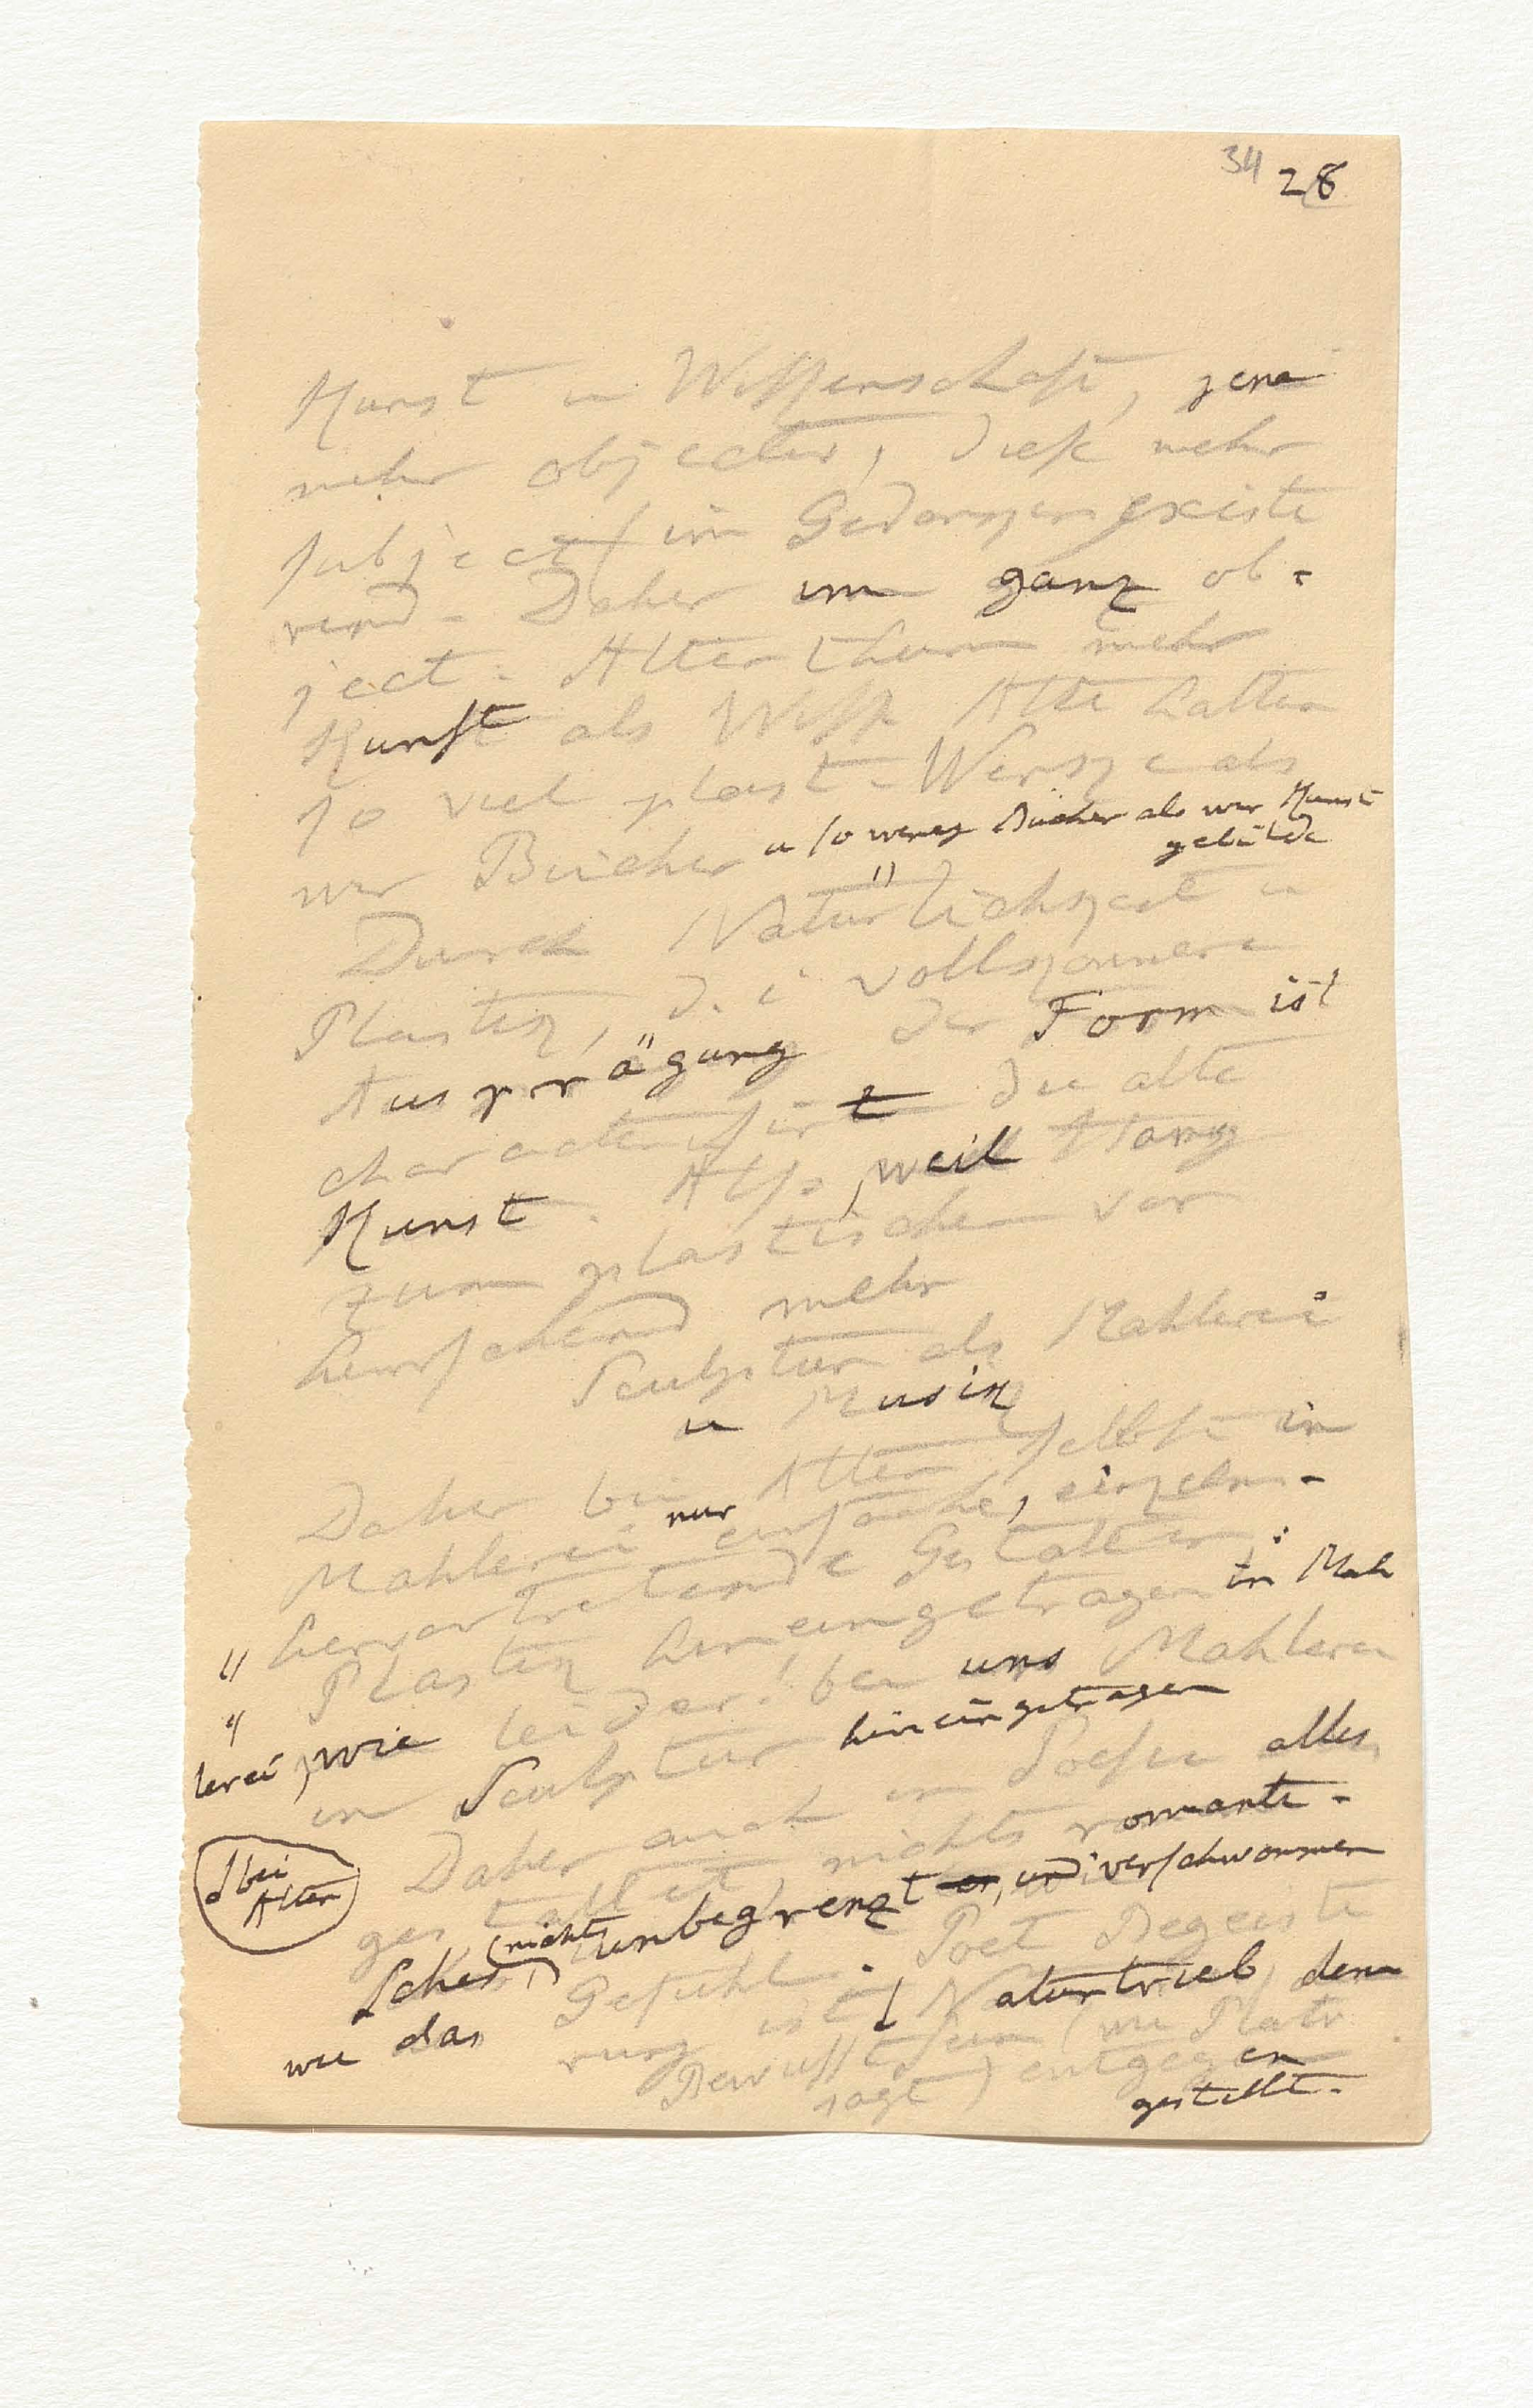 34 28
Kunst u Wissenschaft, jene
mehr objectiv, diese mehr
subject im Gedanken existi
rend. Daher im ganz ob-
ject. Alterthum mehr
Kunst als Wiss. Alte hatten
so viel plast. Werke als
wir Bücher u so wenig Bücher als wir Kunst
gebilde
Durch Natürlichkeit u
Plastik, d. i vollkommene
Ausprägung der Form ist
characterisirt die alte
Kunst. Also, weil Hang
zum plastischen vor
herrschend mehr
Sculptur als Mahlerei
u Musik
Daher bei Alten selbst in
Mahlerei nur einfache, einzeln-
hervortretende Gestalten,
Plastik hineingetragen in Mah
lerei, wie leider! bei uns Mahlerei
in Sculptur hineingetragen
Daher auch in Poesie alles
(bei
Alten)
gestaltet, nichts romanti-
sches, (nichts) unbegrenzt er, und verschwommen
wie das Gefühl. Poet Begeiste
rung ist Naturtrieb, dem
Bewusstsein (wie Plato
sagt) entgegen
gestellt.